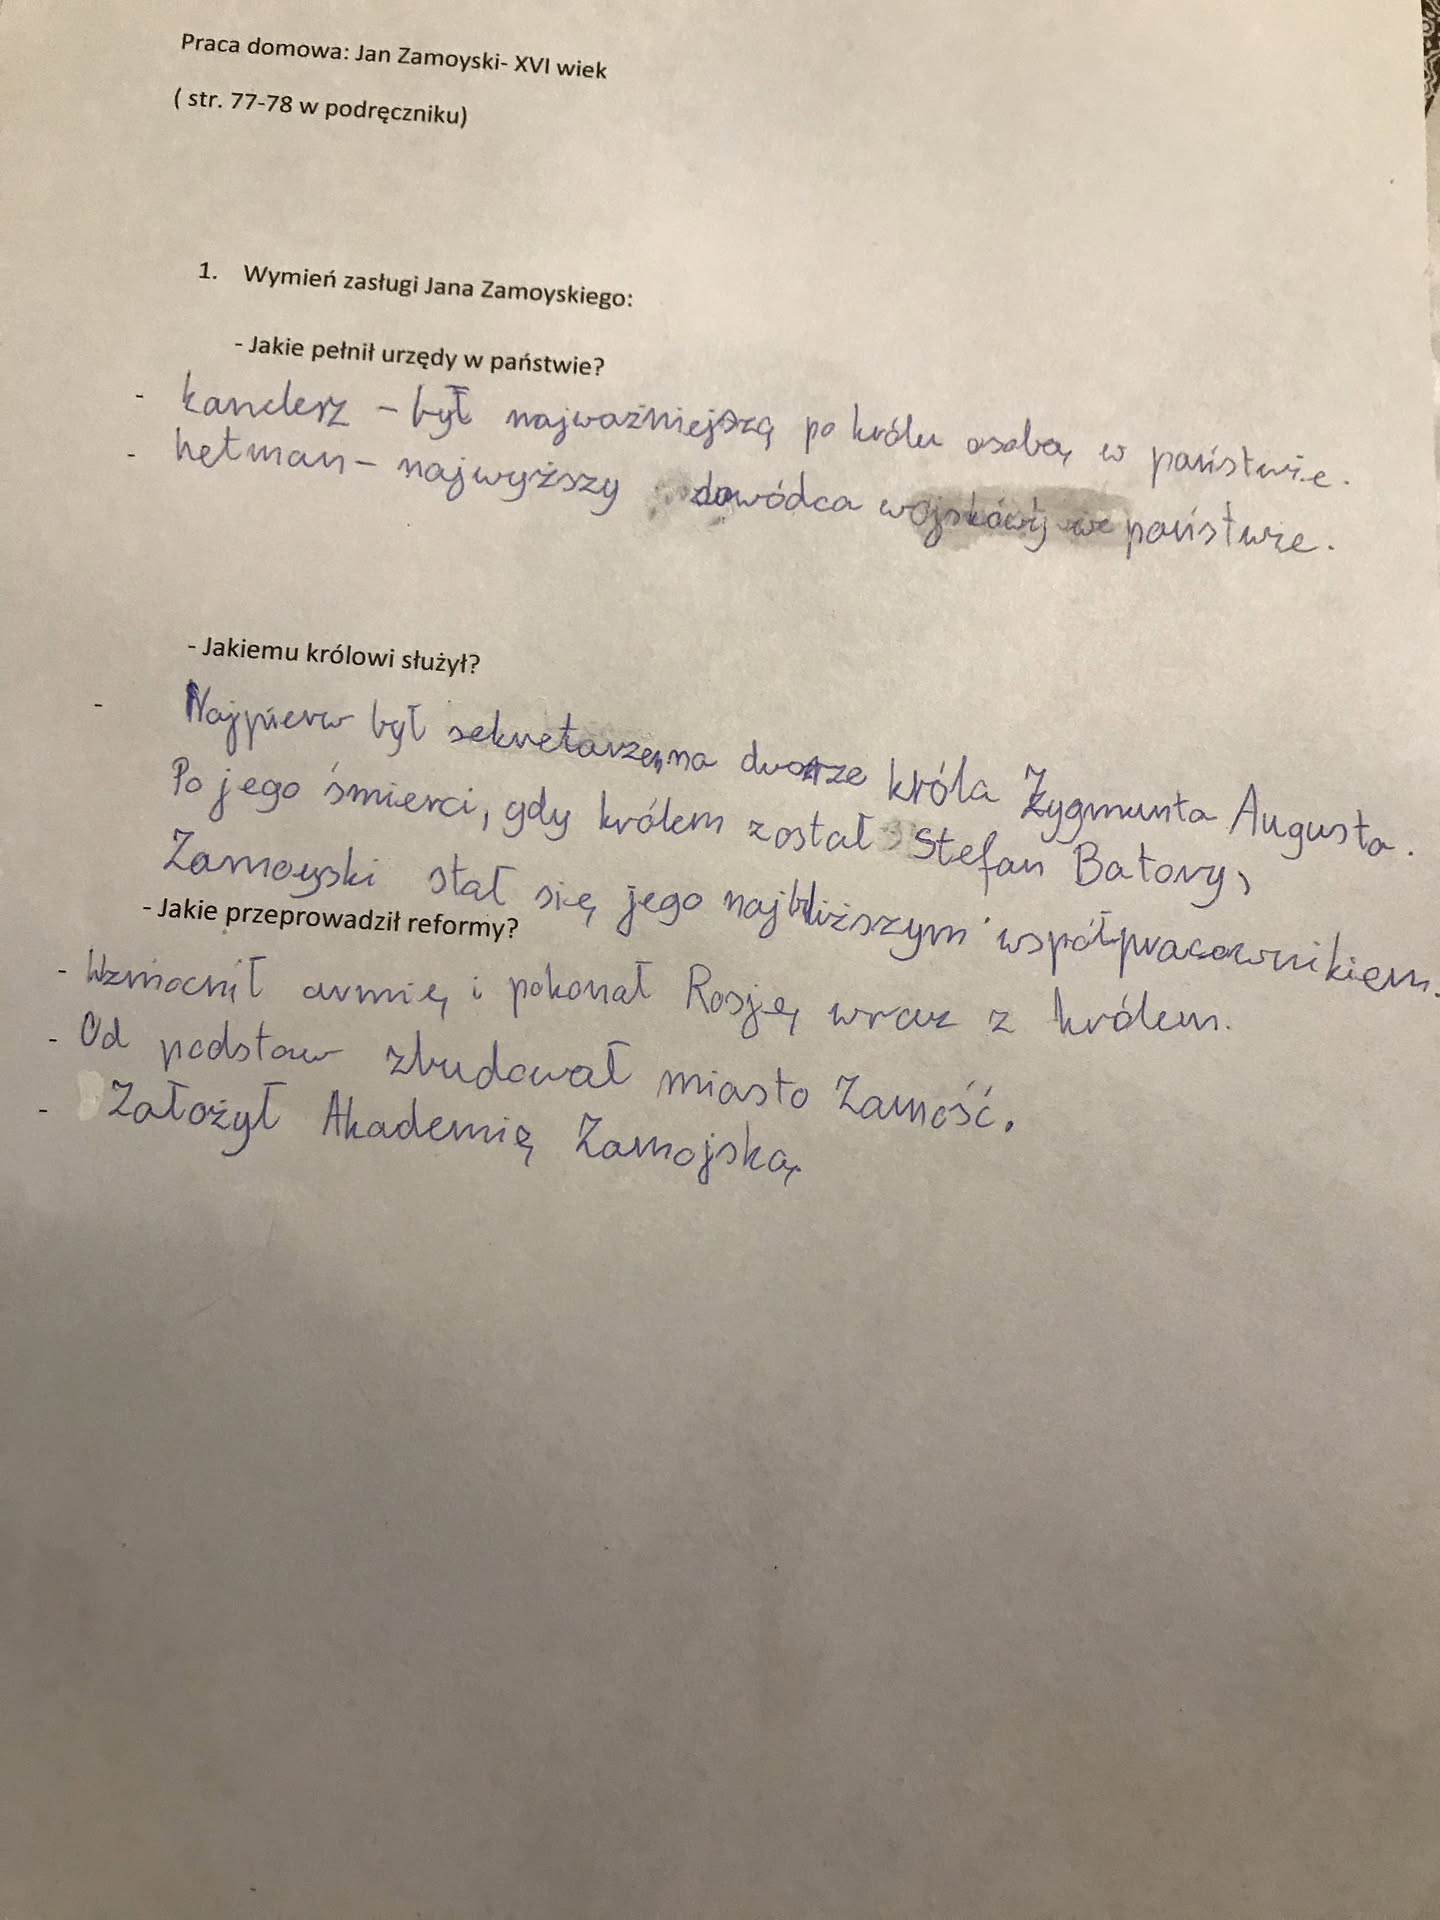 Praca domowa: Jan Zamoyski- XVI wiek
( str. 77-78 w podręczniku)
1. Wymień zasługi Jana Zamoyskiego:
- Jakie pełnił urzędy w państwie?
- kanclerz - był najważniejszą po królu osobą w państwie.
- hetman - najwyższy dowódca wojskowy w państwie.
- Jakiemu królowi służył?
- Najpierw był sekretarzem na dworze króla Zygmunta Augusta.
Po jego śmierci, gdy królem został Stefan Batory,
Zamoyski stał się jego najbliższym współpracownikiem.
- Jakie przeprowadził reformy?
- Wzmocnił armię i pokonał Rosję wraz z królem.
- Od podstaw zbudował miasto Zamość.
- Założył Akademię Zamojską.